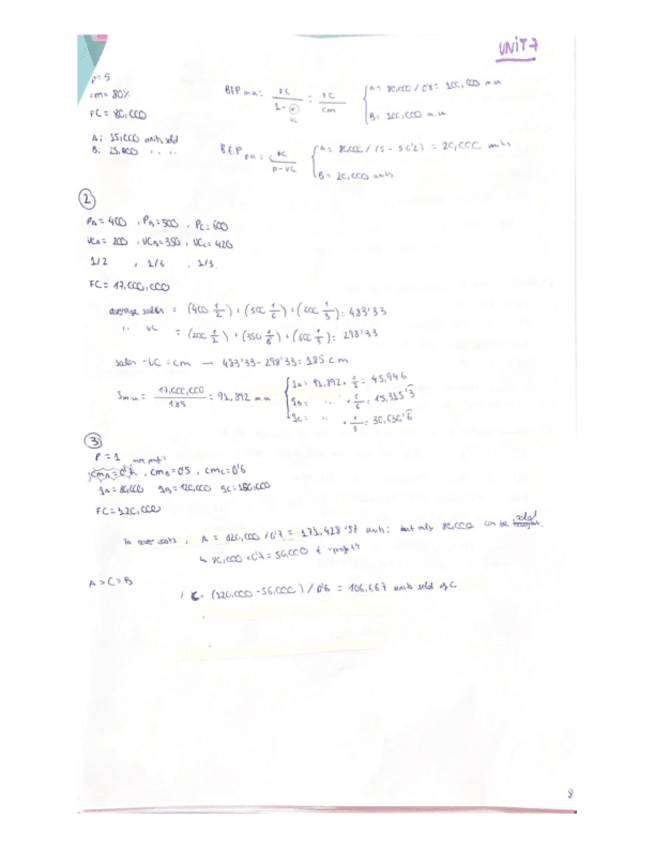 UNIT 7
p = 5
cm = 80%
FC = 80,000
BEP m.u = FC / 1 - = FC / cm
A = 80,000 / 0'8 = 100,000 m.u
B = 100,000 m.u
A: 25,000 units sold
B:
BEP p.u = FC / P - VC
A = 80,000 / (5 - 5·0'2) = 20,000 units
B = 20,000 units
2
PA = 400 , PB = 500 , PC = 600
VCA = 200 , VCB = 350 , VCC = 420
1/2 , 1/6 , 1/3
FC = 17,000,000
average sales = (400 1/2) + (500 1/6) + (600 1/3) = 483'33
" VC = (200 1/2) + (350 1/6) + (1/3) = 298'33
sales - VC = cm → 483'33 - 298'33 = 185 cm
Sm.u = 17,000,000 / 185 = 91,892 m.u
qA = 91,892 · 1/2 = 45,946
qB = " · 1/6 = 15,315'3
qC = " · 1/3 = 30,630'6
3
P = 1
cmA = 0'7 , cmB = 0'5 , cmC = 0'6
qA = 80,000 qB = 120,000 qC =
FC = 120,000
To cover costs , A = 120,000 / 0'7 = 171,428'57 units ; but only 80,000 can be sold
↳ 80,000 · 0'7 = 56,000 € profits
A > C > B
C = (120,000 - 56,000) / 0'6 = 106,667 units sold of C
8